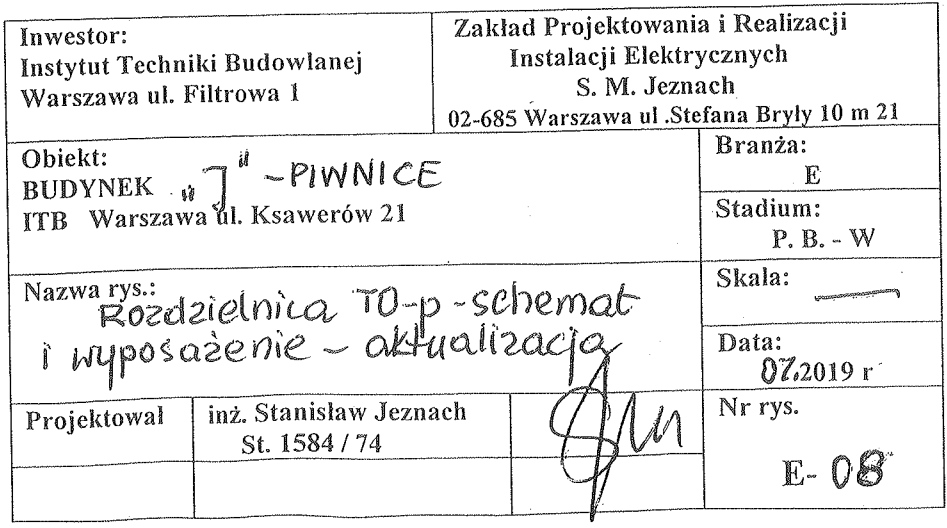 Inwestor:
Instytut Techniki Budowlanej
Warszawa ul. Filtrowa 1
Zakład Projektowania i Realizacji
Instalacji Elektrycznych
S. M. Jeznach
02-685 Warszawa ul .Stefana Bryły 10 m 21
Obiekt:
BUDYNEK „J" - PIWNICE
ITB Warszawa ul. Ksawerów 21
Branża:
E
Stadium:
P. B. - W
Nazwa rys.:
Rozdzielnica TO-p - schemat
i wyposażenie - aktualizacja
Skala: —
Data:
07.2019 r
Projektował
inż. Stanisław Jeznach
St. 1584 / 74
Nr rys.
E- 08